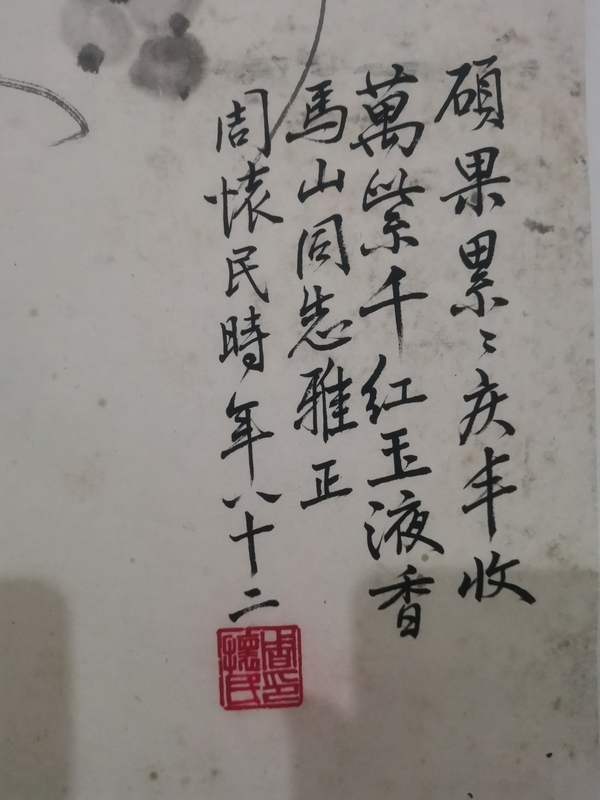 硕果累〻庆丰收
萬紫千红玉液香
馬山同志雅正
周懐民時年八十二
周懷民印